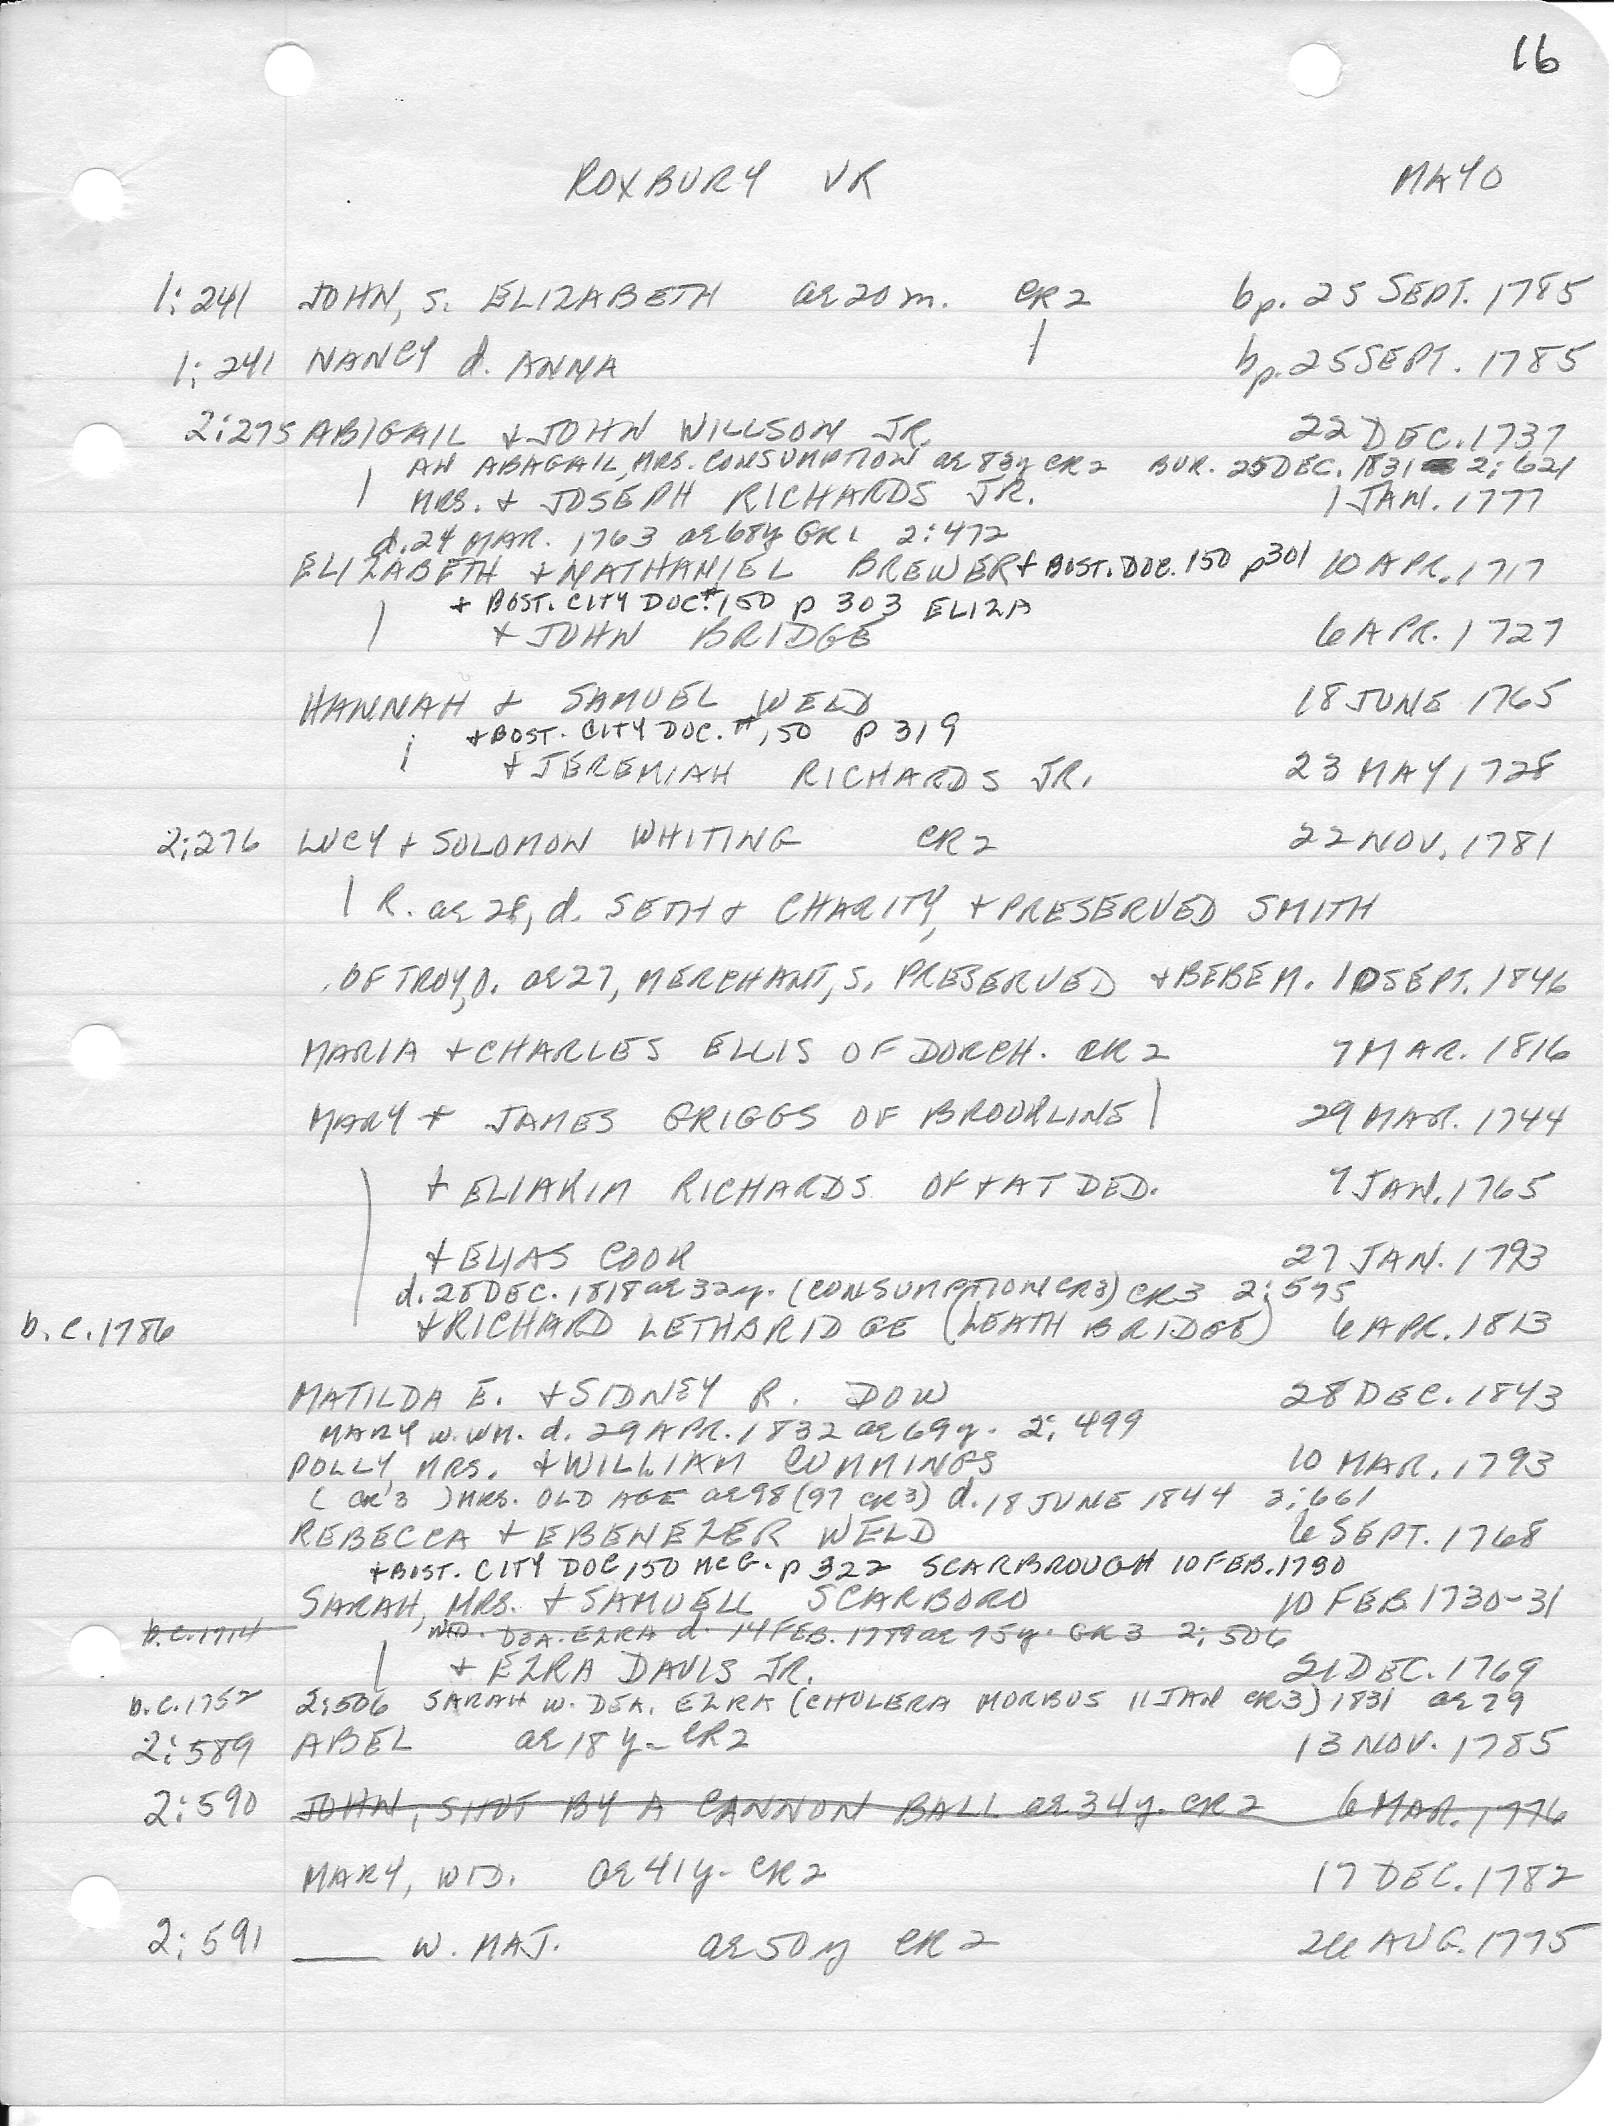 16
ROXBURY VR MAYO
1:241 JOHN, S. ELIZABETH ae 20 m. CR2 bp. 25 SEPT. 1785
1:241 NANCY d. ANNA | bp. 25 SEPT. 1785
2:275 ABIGAIL + JOHN WILLSON JR. 22 DEC. 1737
AN ABAGAIL, MRS. CONSUMPTION ae 83y CR2 BUR. 25 DEC. 1831 2:621
| MRS. + JOSEPH RICHARDS JR. 1 JAN. 1777
d. 24 MAR. 1763 ae 68y GR1 2:472
ELIZABETH + NATHANIEL BREWER + BOST. DOC. 150 p301 10 APR. 1717
+ BOST. CITY DOC. #150 p 303 ELIZA
| + JOHN BRIDGE 6 APR. 1727
HANNAH + SAMUEL WELD 18 JUNE 1765
+ BOST. CITY DOC. #150 p 319
| + JEREMIAH RICHARDS JR. 23 MAY 1728
2:276 LUCY + SOLOMON WHITING CR2 22 NOV. 1781
| R. ae 28, d. SETH + CHARITY, + PRESERVED SMITH
OF TROY, O. ae 27, MERCHANT, S. PRESERVED + BEBE M. 10 SEPT. 1846
MARIA + CHARLES ELLIS OF DORCH. CR2 7 MAR. 1816
MARY + JAMES GRIGGS OF BROOKLINE | 29 MAR. 1744
| + ELIAKIM RICHARDS OF + AT DED. 7 JAN. 1765
+ ELIAS COOK 27 JAN. 1793
d. 28 DEC. 1818 ae 32y. (CONSUMPTION CR3) CR3 2:595
b.c. 1786 + RICHARD LETHBRIDGE (LEATH BRIDGE) 6 APR. 1813
MATILDA E. + SIDNEY R. DOW 28 DEC. 1843
MARY W. WM. d. 29 APR. 1832 ae 69y. 2:499
POLLY, MRS. + WILLIAM CUMMINGS 10 MAR. 1793
( CR3 ) MRS. OLD AGE ae 98 (97 CR3) d. 18 JUNE 1844 2:661
REBECCA + EBENEZER WELD 6 SEPT. 1768
+ BOST. CITY DOC 150 McG. p 322 SCARBROUGH 10 FEB. 1730
SARAH, MRS. + SAMUELL SCARBORO 10 FEB 1730-31
b.c. 1714 WID. DEA. EZRA d. 14 FEB. 1789 ae 75y. GR3 2:506
| + EZRA DAVIS JR. 21 DEC. 1769
b.c. 1752 2:506 SARAH W. DEA. EZRA (CHOLERA MORBUS 11 JAN CR3) 1831 ae 79
2:589 ABEL ae 18 y- CR2 13 NOV. 1785
2:590 JOHN, SHOT BY A CANNON BALL ae 34y. CR2 6 MAR. 1776
MARY, WID. ae 41y- CR2 17 DEC. 1782
2:591 ____ W. MAJ. ae 50 y CR2 26 AUG. 1775